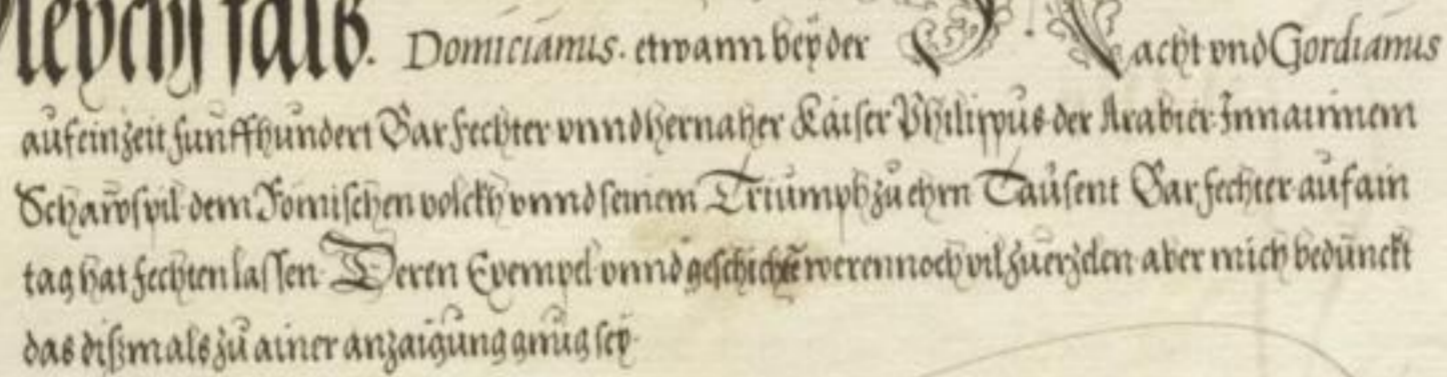 Gleychsfalß. Domicianus. etwann bey der Nacht vnd Gordianus
auf ein zeit funffhundert Par fechter vnnd hernaher Kaiser Philippus der Arabier Inn ainnem
Schawspil dem Römischen volckh vnnd seinem Triumph zu ehrn Tausent Par fechter auf ain
tag hat fechten lassen. Deren Exempel vnnd geschichte weren noch vil zu erzelen aber mich bedunckt
das dißmals zu ainer anzaigung gnug sey.